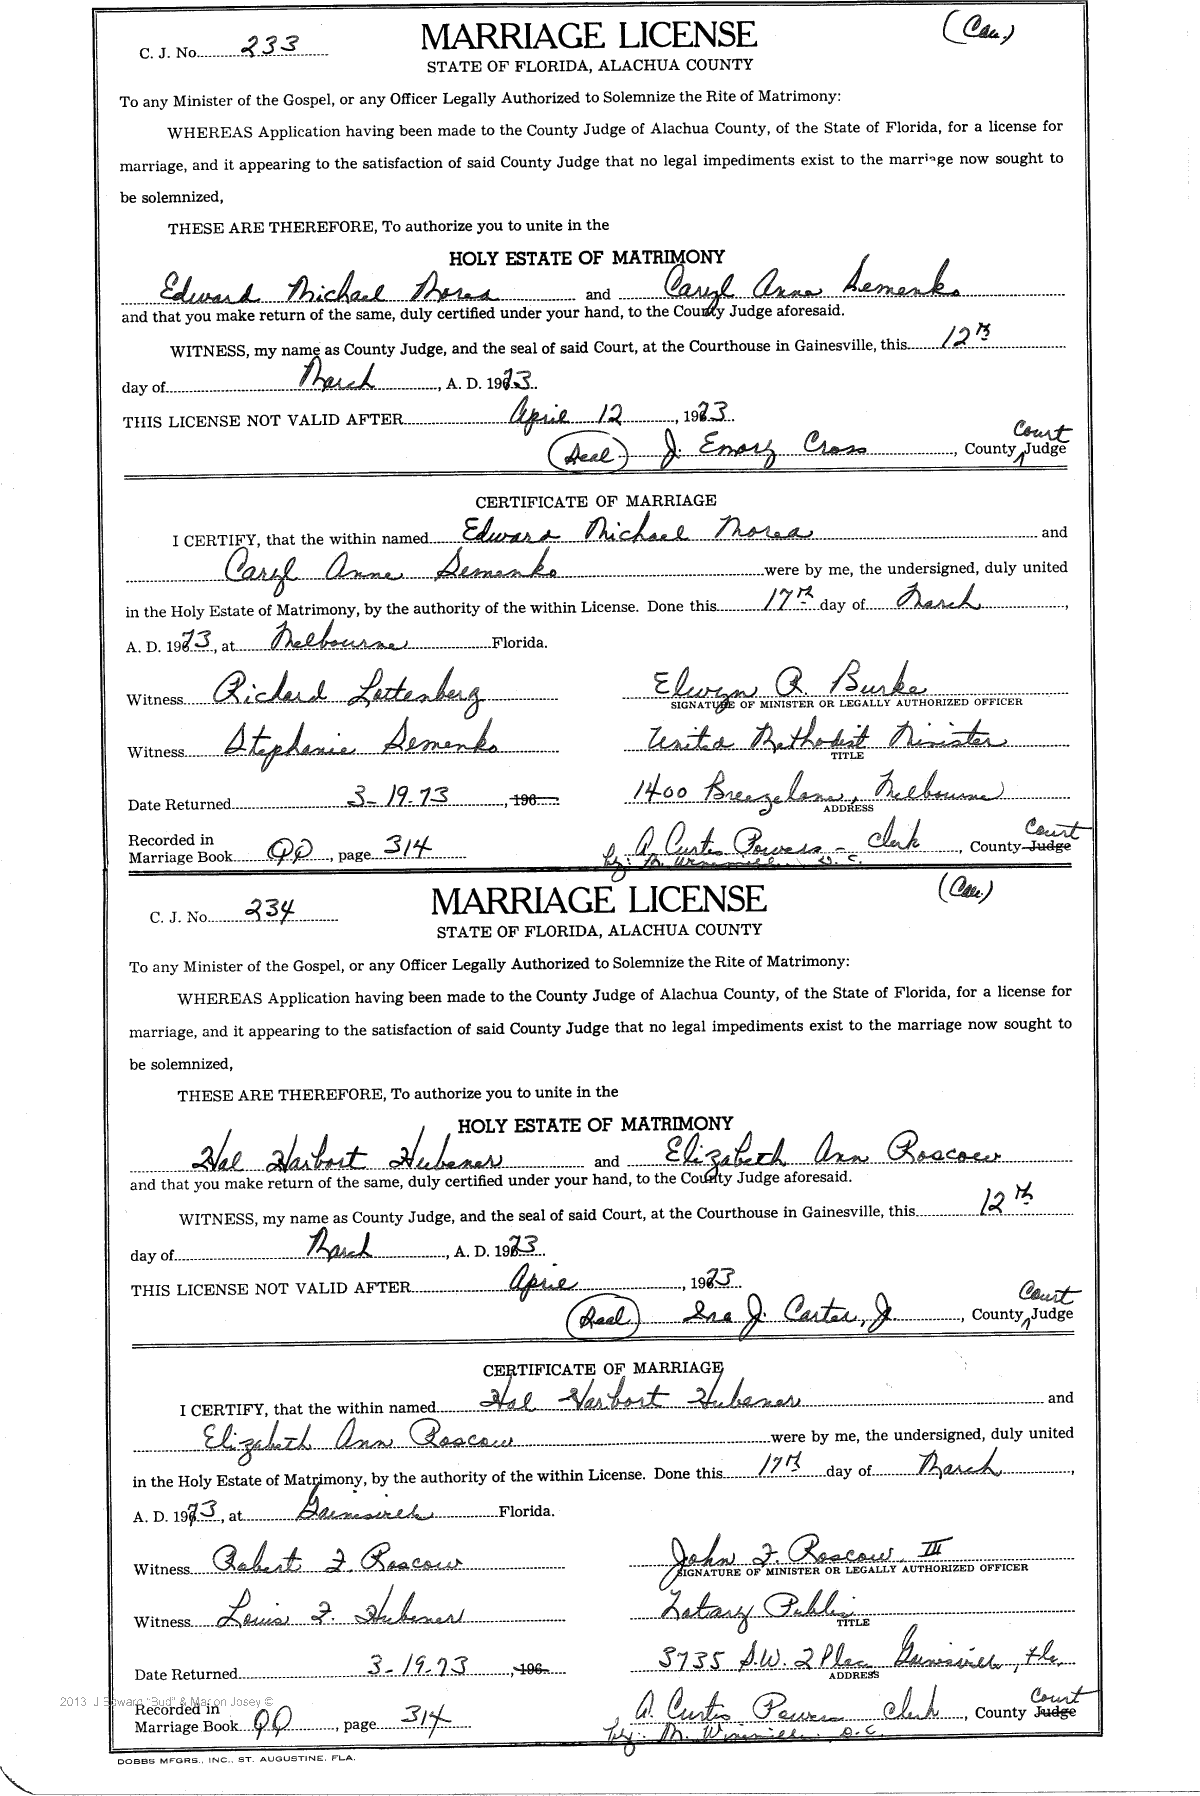 C. J. No. 233 MARRIAGE LICENSE (Cau.)
STATE OF FLORIDA, ALACHUA COUNTY
To any Minister of the Gospel, or any Officer Legally Authorized to Solemnize the Rite of Matrimony:
WHEREAS Application having been made to the County Judge of Alachua County, of the State of Florida, for a license for
marriage, and it appearing to the satisfaction of said County Judge that no legal impediments exist to the marriage now sought to
be solemnized,
THESE ARE THEREFORE, To authorize you to unite in the
HOLY ESTATE OF MATRIMONY
Edward Michael Morea and Caryl Anne Semenko
and that you make return of the same, duly certified under your hand, to the County Judge aforesaid.
WITNESS, my name as County Judge, and the seal of said Court, at the Courthouse in Gainesville, this 12th
day of March, A. D. 1973.
THIS LICENSE NOT VALID AFTER April 12, 1973.
(Seal) J. Emory Cross, County Court Judge
CERTIFICATE OF MARRIAGE
I CERTIFY, that the within named Edward Michael Morea and
Caryl Anne Semenko were by me, the undersigned, duly united
in the Holy Estate of Matrimony, by the authority of the within License. Done this 17th day of March,
A. D. 1973, at Melbourne Florida.
Witness Richard Lottenberg Elwyn R. Burke
SIGNATURE OF MINISTER OR LEGALLY AUTHORIZED OFFICER
Witness Stephanie Semenko United Methodist Minister
TITLE
Date Returned 3-19-73, 196 1400 Breezelane, Melbourne
ADDRESS
Recorded in
Marriage Book QQ, page 314 A. Curtis Powers - Clerk, County Court Judge
by: M. D. C.
C. J. No. 234 MARRIAGE LICENSE (Cau.)
STATE OF FLORIDA, ALACHUA COUNTY
To any Minister of the Gospel, or any Officer Legally Authorized to Solemnize the Rite of Matrimony:
WHEREAS Application having been made to the County Judge of Alachua County, of the State of Florida, for a license for
marriage, and it appearing to the satisfaction of said County Judge that no legal impediments exist to the marriage now sought to
be solemnized,
THESE ARE THEREFORE, To authorize you to unite in the
HOLY ESTATE OF MATRIMONY
Hal Harbort Hubener and Elizabeth Ann Roscow
and that you make return of the same, duly certified under your hand, to the County Judge aforesaid.
WITNESS, my name as County Judge, and the seal of said Court, at the Courthouse in Gainesville, this 12th
day of March, A. D. 1973.
THIS LICENSE NOT VALID AFTER April, 1973.
(Seal) Ira J. Carter, Jr., County Court Judge
CERTIFICATE OF MARRIAGE
I CERTIFY, that the within named Hal Harbort Hubener and
Elizabeth Ann Roscow were by me, the undersigned, duly united
in the Holy Estate of Matrimony, by the authority of the within License. Done this 17th day of March,
A. D. 1973, at Gainesville Florida.
Witness Robert F. Roscow John F. Roscow, III
SIGNATURE OF MINISTER OR LEGALLY AUTHORIZED OFFICER
Witness Louis F. Hubener Notary Public
TITLE
Date Returned 3-19-73, 196 3735 S.W. 2 Place Gainesville, Fla.
ADDRESS
2013 J Edward "Bud" & Marion Josey ©
Recorded in
Marriage Book QQ, page 314 A. Curtis Powers Clerk, County Court Judge
by: M. D.C.
DOBBS MFGRS., INC., ST. AUGUSTINE, FLA.